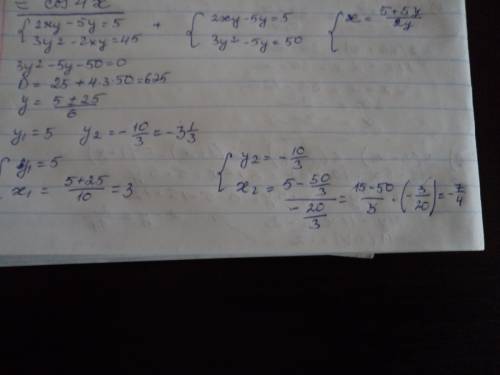 = cos 4x
{ 2xy-5y=5
3y²-2xy=45 + { 2xy-5y=5
3y²-5y=50 { x = (5+5y)/2y
3y²-5y-50=0
D = 25+4·3·50=625
y = (5±25)/6
y₁=5 y₂=-10/3=-3 1/3
{ y₁=5
x₁ = (5+25)/10 = 3
{ y₂=-10/3
x₂ = (5-50/3)/(-20/3) = (15-50)/3 · (-3/20) = -7/4